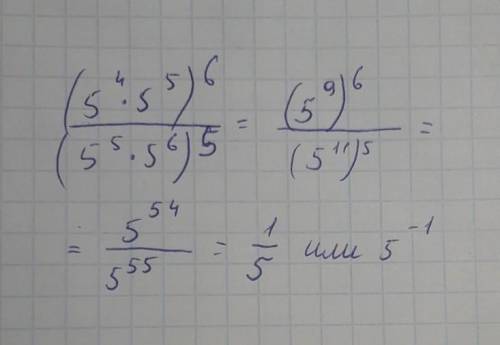 (5⁴·5⁵)⁶/(5⁵·5⁶)⁵ = (5⁹)⁶/(5¹¹)⁵ =
= 5⁵⁴/5⁵⁵ = 1/5 или 5⁻¹